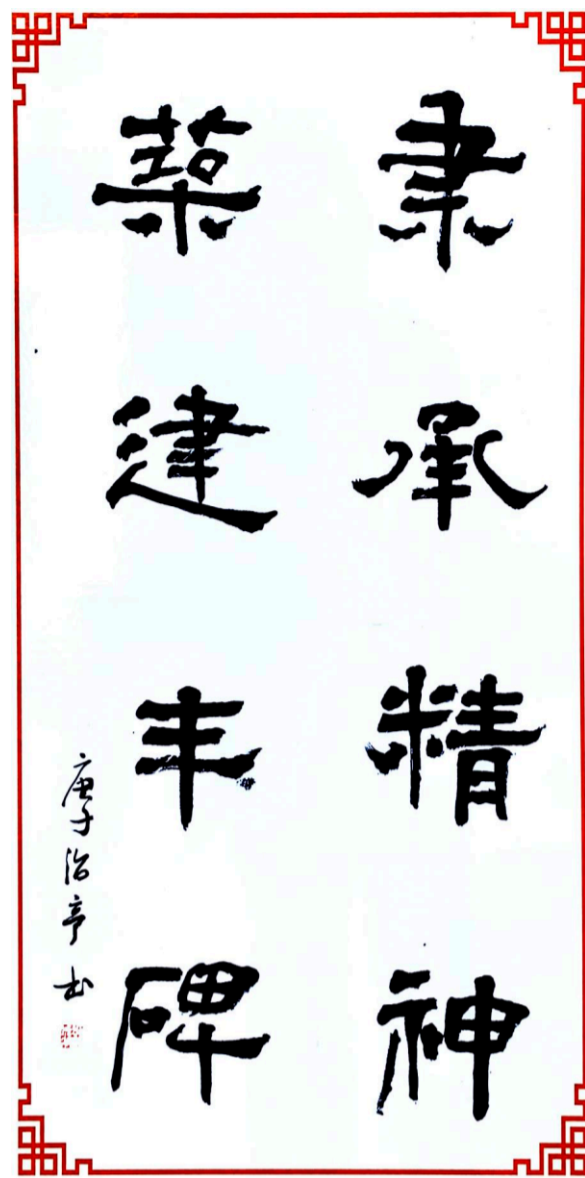 秉承精神
築建丰碑
庚子治亭书